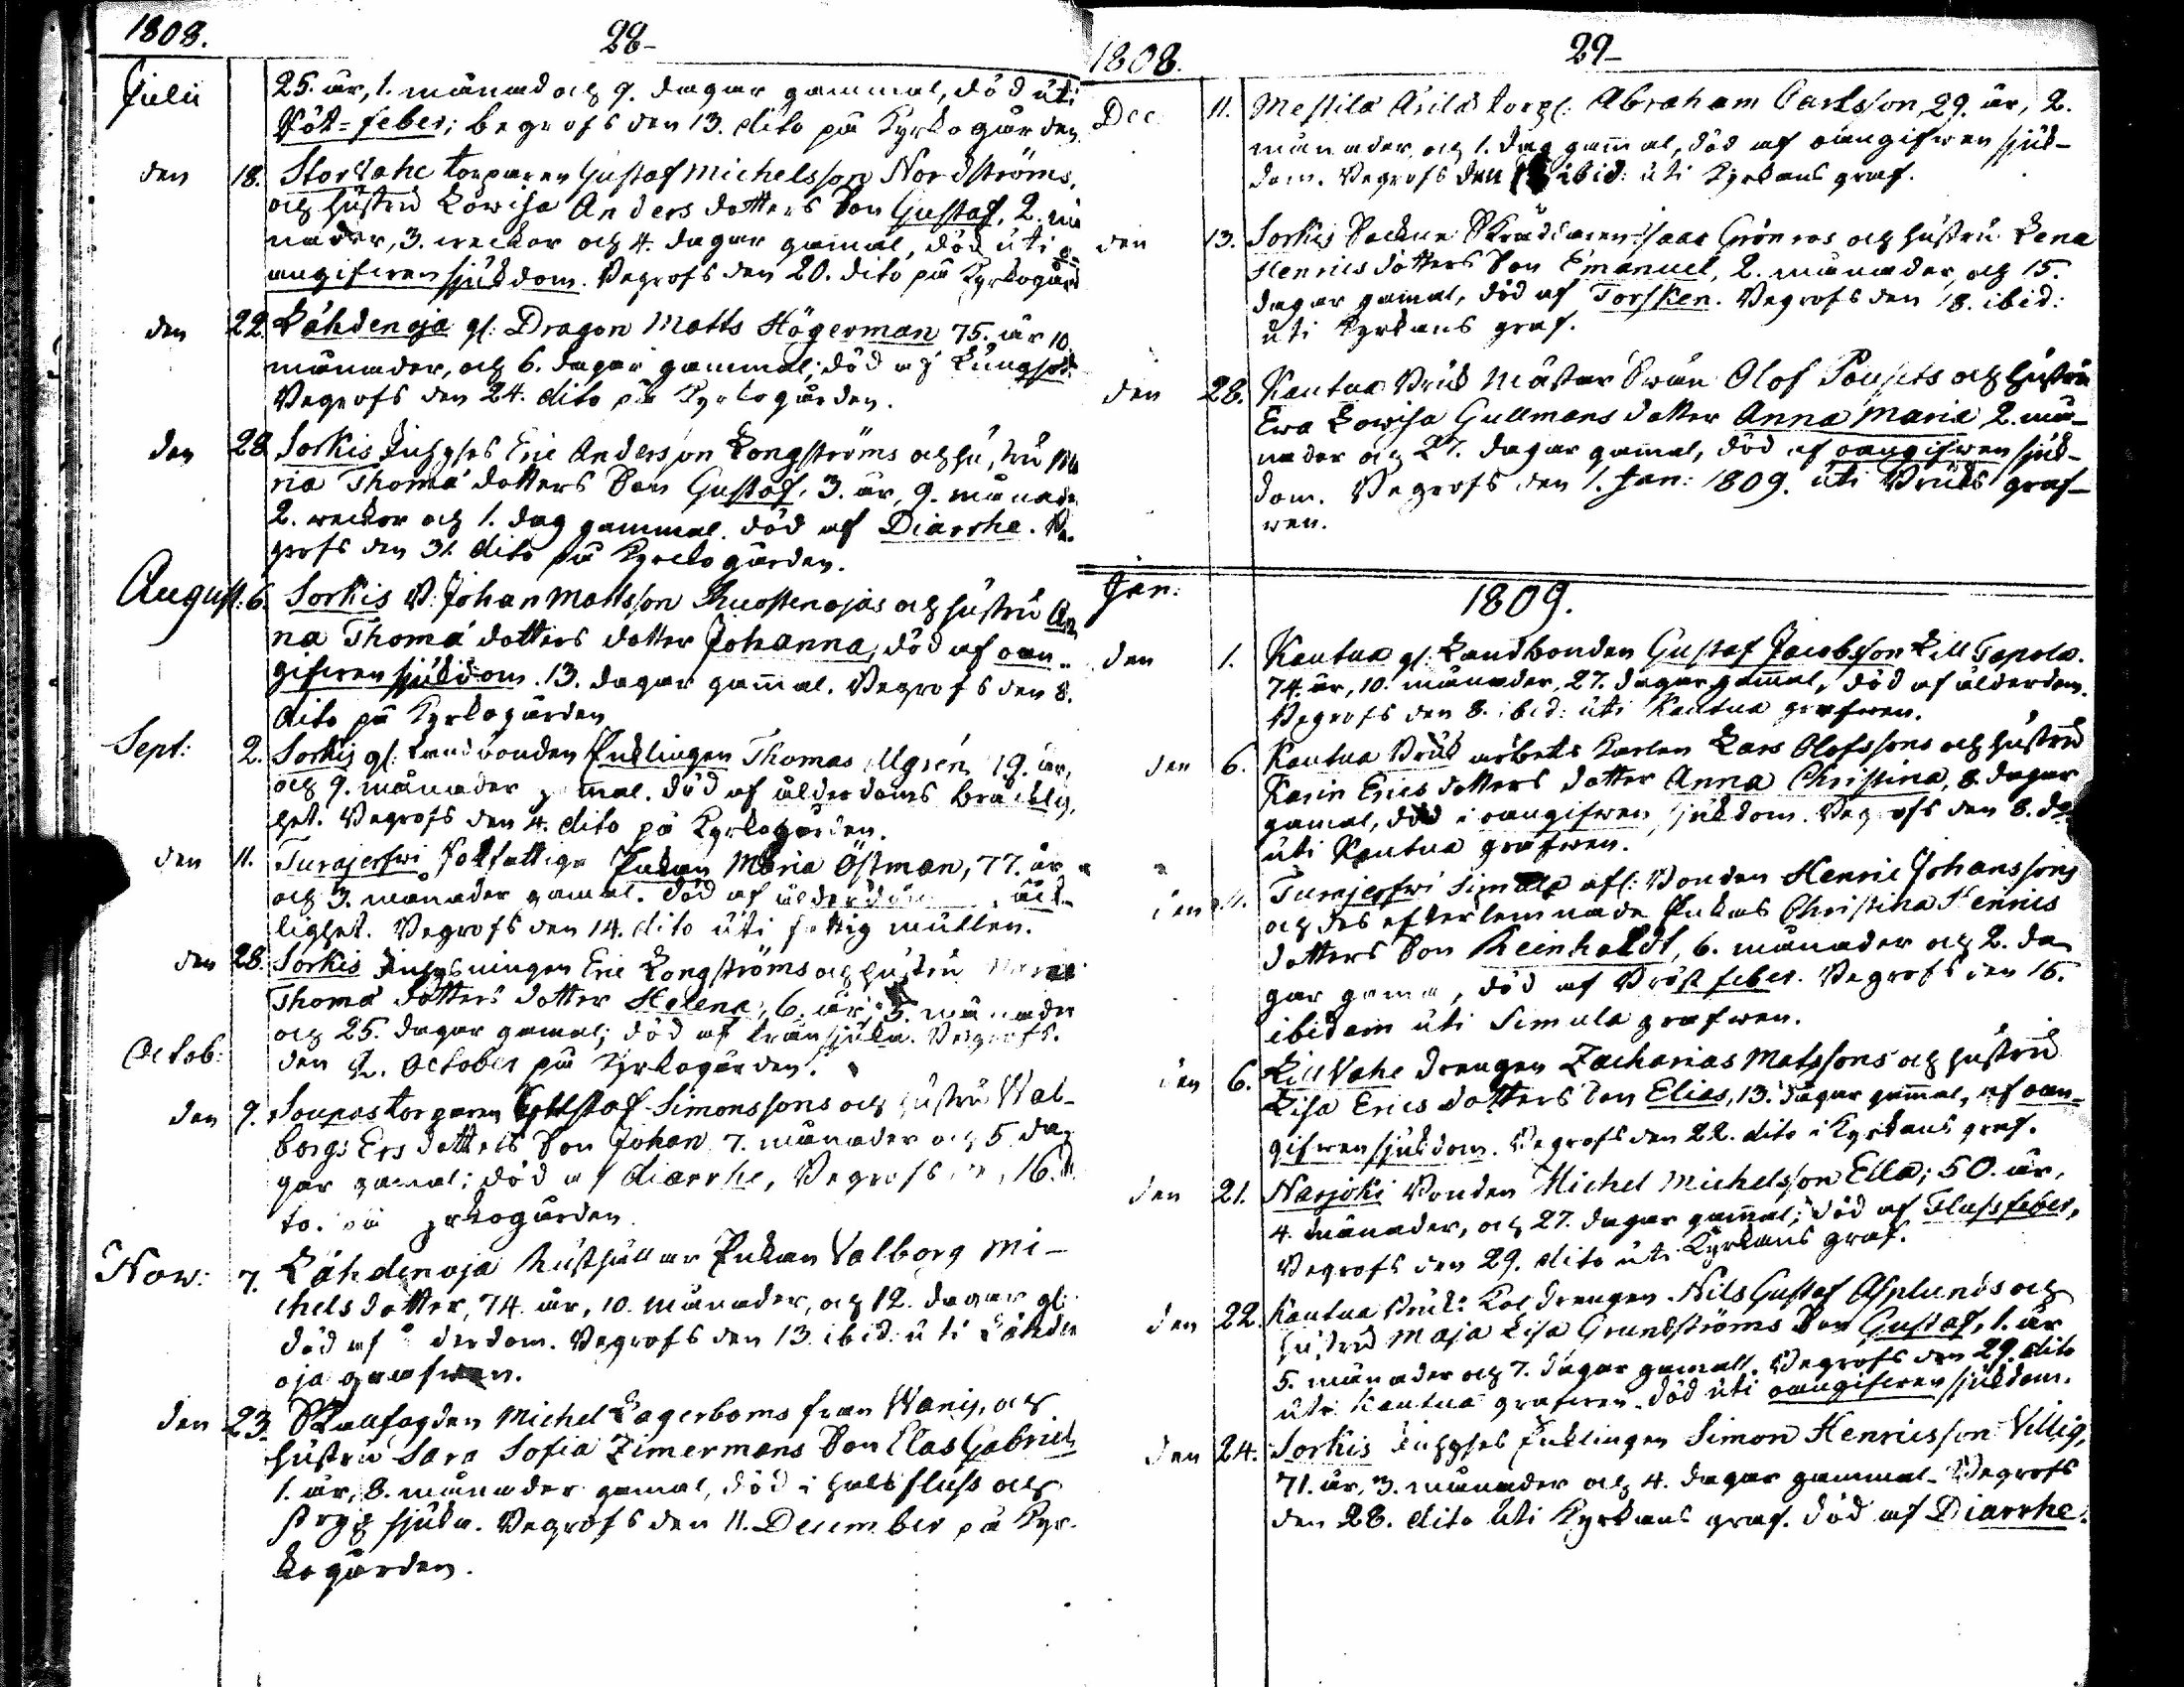 1808.
28-
Julii
25. år, 1. månad och 9. dagar gammal, död uti
Röt=feber; begrofs den 13. dito på Kyrkogården
den 18. StorVahe torparen Gustaf Michelsson Nordströms,
och hustru Lowisa Andersdotters Son Gustaf, 2. må
nader, 3. weckor och 4. dagar gamal, död uti o-
angifwen sjukdom. Begrofs den 20. dito på Kyrkogård
den 22. Lähdenoja gl: Dragon Matts Högerman 75. år 10.
månader, och 6. dagar gammal; död af Lungsot.
Begrofs den 24. dito på Kyrkogården.
den 28. Sorkis Inhyses Eric Andersson Longströms och hustru Ma
ria Thomæ dotters Son Gustaf, 3. år, 9. månade
2. weckor och 1. dag gammal. död af Diarrhe. Be
grofs den 31. dito på Kyrkogården.
August: 6. Sorkis B: Johan Mattsson Ruostenojas och hustru An
na Thomæ dotters dotter Johanna, död af oan-
gifwen sjukdom. 13. dagar gamal. Begrofs den 8.
dito på Kyrkogården
Sept: 2. Sorkis gl: Landbonden Enklingen Thomas Algrén, 79. år,
och 9. månader gamal. död af ålderdoms bräcklig
het. Begrofs den 4. dito på Kyrkogården.
den 11. Turajerfwi Fattiga Enkan Maria Östman, 77. år
och 3. månader gamal. död af ålderdoms bräck-
lighet. Begrofs den 14. dito uti fattig mullen.
den 28. Sorkis Inhysningen Eric Longströms och hustru Maria
Thomæ dotters dotter Helena, 6. år, 5. månader
och 25. dagar gamal; död af transjuka. Begrofs.
Octob:
den 2. October på Kyrkogården.
den 9. Soupas torparen Gustaf Simonssons och hustru Wal-
borgs Ers dotters Son Johan 7. månader och 5. da
gar gamal; död af diarrhe, Begrofs den 16. di
to. på Kyrkogården.
Now: 7. Lähdenoja Rusthållar Enkan Valborg Mi-
chelsdotter, 74. år, 10. månader, och 12. dagar gl:
död af ålderdom. Begrofs den 13. ibid: uti Lähden
oja grafwen.
den 23. Skallfogden Michel Lagerboms från Wanis, och
hustru Sara Sofia Zimermans Son Clas Gabriel
1. år, 8. månader gamal, död i halsfluss och
stryp sjuka. Begrofs den 11. December på Kyr-
kogården.
1808.
29-
Dec 11. Mestilä Ärilä torp: Abraham Carlsson, 29. år, 2.
månader, och 1. dag gamal, död af oangifwen sjuk-
dom. Begrofs den ibid: uti Kyrkans graf.
den 13. Sorkis Sockne Skräddaren Isaac Grönroos och hustru Lena
Henricsdotters Son Emanuel, 2. månader, och 15.
dagar gamal, död af Torsken. Begrofs den 18. ibid:
uti Kyrkans graf.
den 28. Kautua Bruk Mästar Swän Olof Pousets och hustru
Ewa Lowisa Gullmans dotter Anna Maria 2. må-
nader och 27. dagar gamal, död af oangifwen sjuk-
dom. Begrofs den 1. Jan: 1809. uti Bruks graf-
wen.
Jan:
1809.
den 1. Kautua gl: Landbonden Gustaf Jacobsson Lill Tapola.
74. år, 10. månader, 27. dagar gamal, död af ålderdom.
Begrofs den 8. ibid: uti Kautua grafwen.
den 6. Kautua Bruk arbets Karlen Lars Olofssons och hustru
Karin Erics dotters dotter Anna Christina, 8. dagar
gamal, död i oangifwen sjukdom. Begrofs den 8. do
uti Kautua grafwen.
den 11. Turajerfwi Simola afl: Bonden Henric Johanssons
och des efterlemnade Enkas Christina Henrics
dotters Son Reinholdt, 6. månader och 2. da
gar gamal, död af Bröst feber. Begrofs den 16.
ibidem uti Simula grafwen.
den 6. LillVahe drengen Zacharias Matssons och hustru
Lisa Erics dotters Son Elias, 13. dagar gamal, af oan-
gifwen sjukdom. Begrofs den 22. dito i Kyrkans graf.
den 21. Narjoki Bonden Michel Michelsson Eila; 50. år,
4. månader, och 27. dagar gamal; död af Flussfeber,
Begrofs den 29. dito uti Kyrkans graf.
den 22. Kautua Bruk: Kol drengen Nils Gustaf Asplunds och
hustru Maja Lisa Grundströms Son Gustaf, 1. år
5. månader och 7. dagar gamall. Begrofs den 29. dito
uti Kautua grafwen. död uti oangifwen sjukdom.
den 24. Sorkis Inhyses Enklingen Simon Henricsson Villig,
71. år, 3. månader och 4. dagar gammal. Begrofs
den 28. dito uti Kyrkans graf. död af Diarrhe.